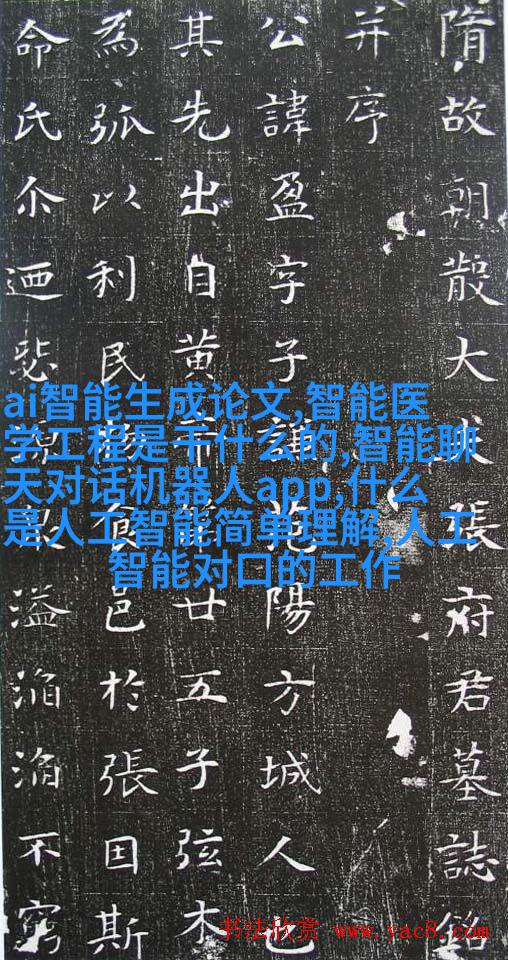 隋故朝散大夫張府君墓誌銘
并序
公諱盈字子謙范陽方城人也
其先出自黃帝廿五子弦木
為弧以利民食邑於張因斯
命氏尒迺溢滔滔不窮
ai智能生成论文,智能医
学工程是干什么的,智能聊
天对话机器人app,什么
是人工智能简单理解,人工
智能对口的工作
书法欣赏 www.yac8.com